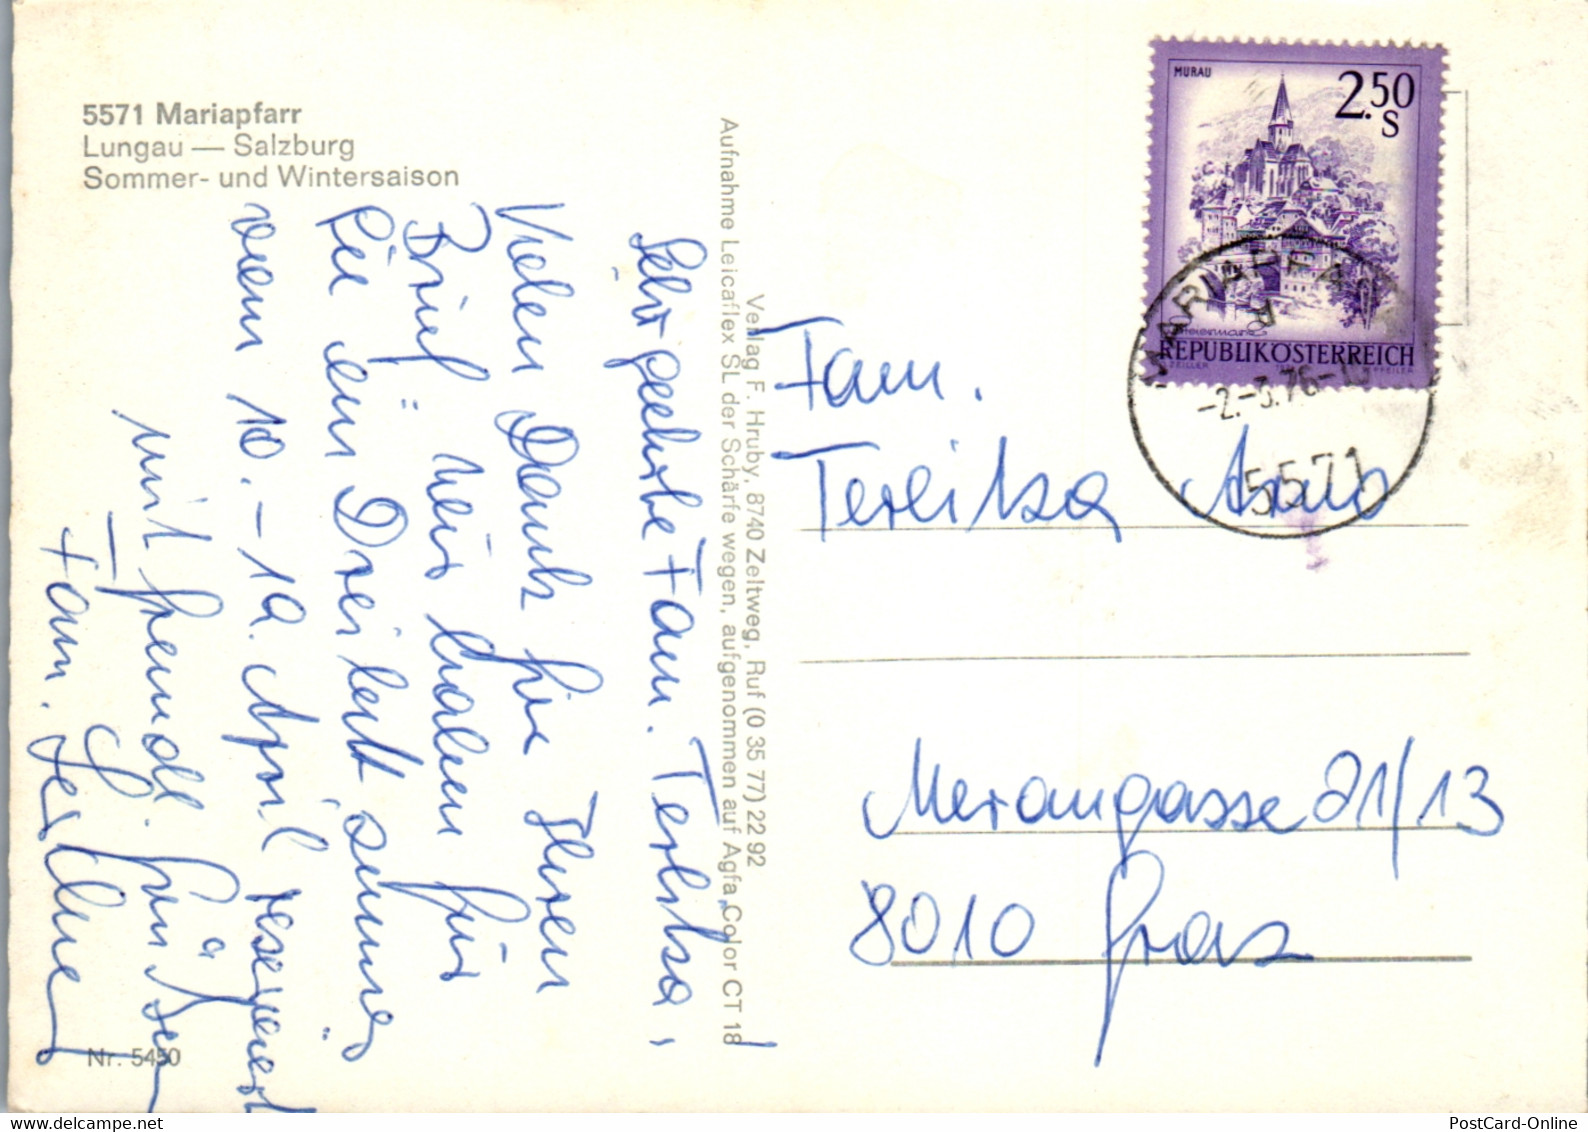 5571 Mariapfarr
Lungau — Salzburg
Sommer- und Wintersaison
Sehr geehrte Fam. Terlitza,
Vielen Dank für Ihren
Brief! Wir haben für
Sie ein Dreibettzimmer
vom 10.-19. April reserviert
mit freundl. Grüßen
Fam.
Nr. 5450
Verlag F. Hruby, 8740 Zeltweg, Ruf (0 35 77) 22 92
Aufnahme Leicaflex SL der Schärfe wegen, aufgenommen auf Agfa Color CT 18
MURAU
2.50
S
Steiermark
REPUBLIK ÖSTERREICH
MARIAPFARR
-2.-3.76-10
5571
Fam.
Terlitza
Merangasse 21/13
8010 Graz
PostCard-Online